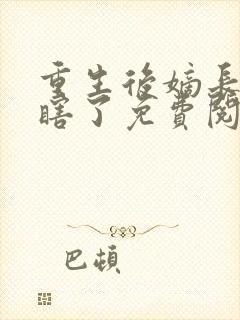 重生後嫡長
瞎了免費閱
巴頓